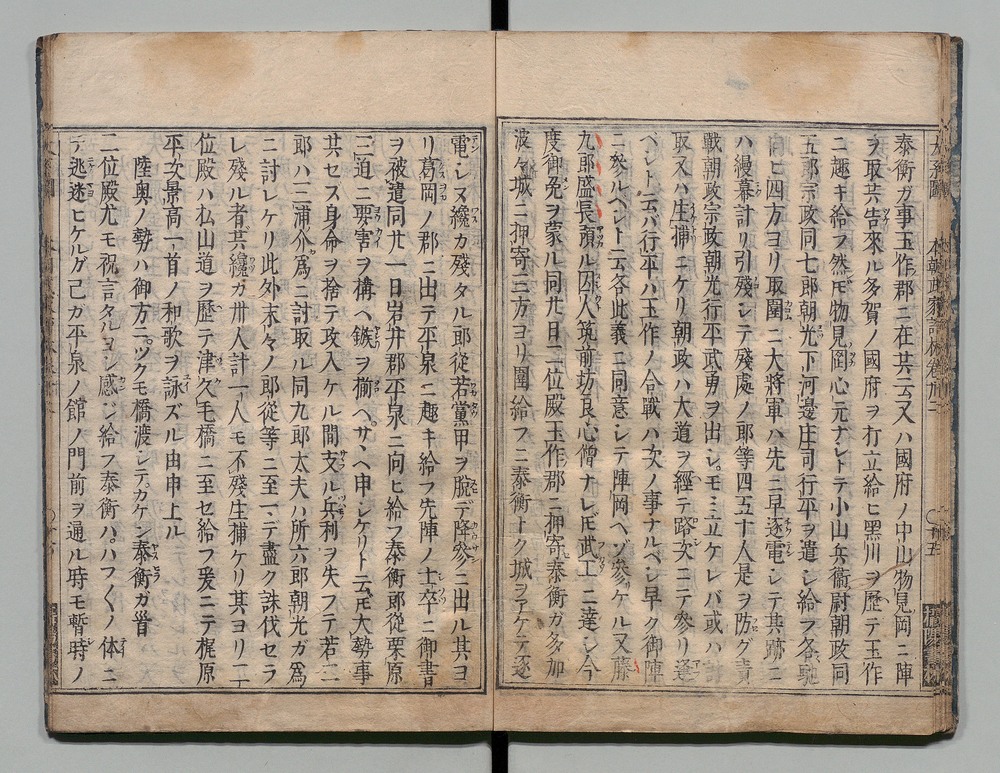 泰衡ガ事玉作郡ニ在共云又ハ國府ノ中山物見岡ニ陣
ヲ取共告來ル多賀ノ國府ヲ打立給ヒ黑川ヲ歷テ玉作
ニ趣キ給フ然ドモ物見岡心元ナシトテ小山兵衞尉朝政同
五郎宗政同七郎朝光下河邊庄司行平ヲ遣シ給フ各馳
向ヒ四方ヨリ取圍ニ大將軍ハ先ニ早逐電シテ其跡ニ
ハ幔幕計リ引殘シテ殘處ノ郎等四五十人是ヲ防グ
戰朝政宗政朝光行平武勇ヲ出シモミ立ケレバ或ハ討
取又ハ生捕ニケリ朝政ハ大道ヲ經テ路次ニテ參リ逢
ベシト云バ行平ハ玉作ノ合戰ハ次ノ事ナルベシ早ク御陣
ニ參ルベシト云各此義ニ同意シテ陣岡ヘゾ參ケル又藤
九郎盛長預ル囚人筑前坊良心僧ナレ𪜈武工ニ達シ今
度御免ヲ蒙ル同廿日二位殿玉作郡ニ押寄泰衡ガ多加
波々城ニ押寄三方ヨリ圍給フニ泰衡トク城ヲアケテ逐
電シヌ纔カ殘タル郎從若黨甲ヲ脫デ降參ニ出ル其ヨ
リ葛岡ノ郡ニ出テ平泉ニ趣キ給フ先陣ノ士卒ニ御書
ヲ被遣同廿一日岩井郡平泉ニ向ヒ給フ泰衡郎從栗原
三迫ニ要害ヲ構ヘ鏃ヲ揃ヘサヽヘ申シケリト云𪜈大勢事
共セス身命ヲ捨テ攻入ケル間支ル兵利ヲ失フテ若二
郎ハ三浦介爲ニ討取ル同九郎太夫ハ所六郎朝光ガ爲
ニ討レケリ此外末々ノ郎從等ニ至マデ盡ク誅伐セラ
レ殘ル者共纔ガ卅人計一人モ不殘生捕ケリ其ヨリ二
位殿ハ松山道ヲ歷テ津久毛橋ニ至セ給フ爰ニテ梶原
平次景高一首ノ和歌ヲ詠ズル由申上ル
陸奧ノ勢ハ御方ニツクモ橋渡シテカケン泰衡ガ首
二位殿尤モ祝言タルヨシ感ジ給フ泰衡ハハフ〱ノ体ニ
テ逃迷ヒケルガ己ガ平泉ノ館ノ門前ヲ通ル時モ暫時ノ